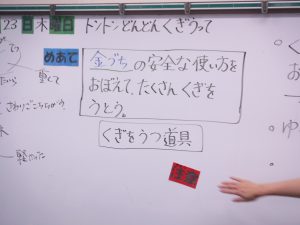 23 日 木 曜日 トントンどんどんくぎうって
めあて
金づちの安全な使い方を
おぼえて、たくさんくぎを
うとう。
くぎをうつ道具
重くて
軽かった
ゆ